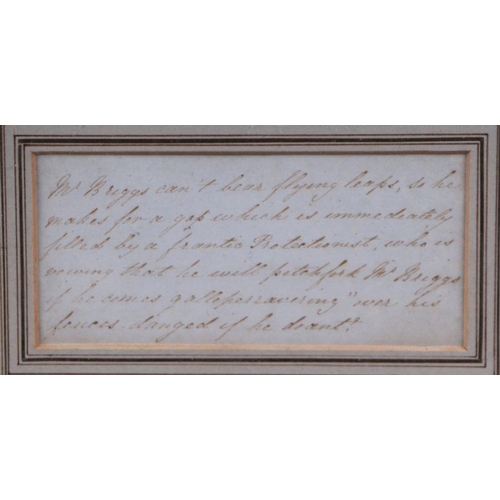 Mr Briggs can't bear flying leaps, so he
makes for a gap which is immediately
filled by a frantic Protectionist, who is
vowing that he will pitchfork Mr Briggs
if he comes "galloperravering" over his
fences – danged if he doant!